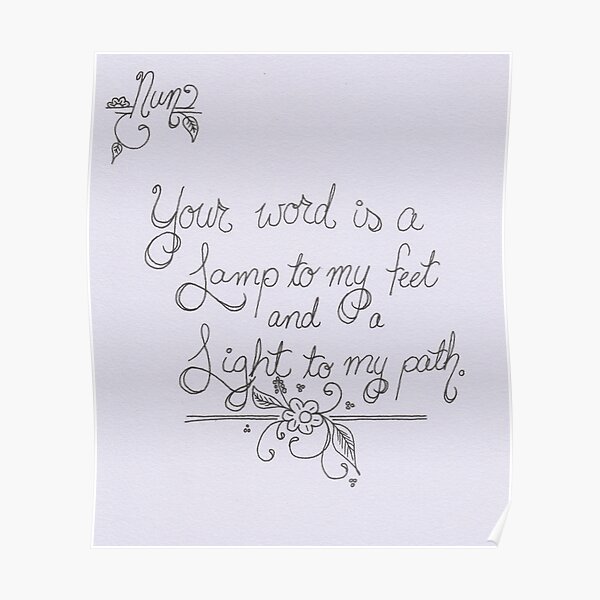 Nun
Your word is a
Lamp to my feet
and a
Light to my path.